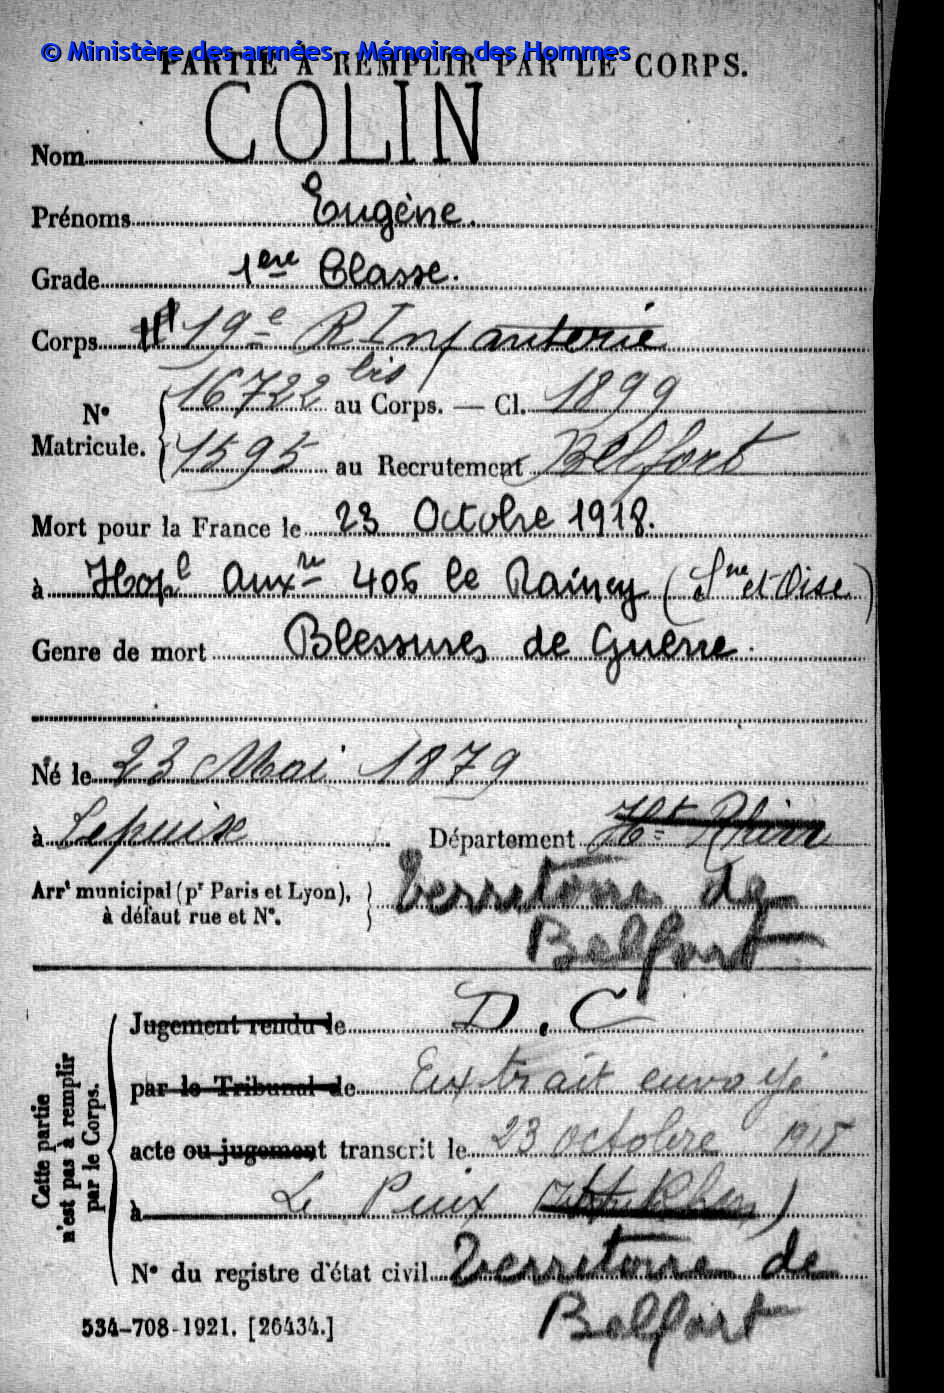 © Ministère des armées - Mémoire des Hommes
PARTIE À REMPLIR PAR LE CORPS.
Nom COLIN
Prénoms Eugène.
Grade 1ère Classe.
Corps 19e R Infanterie
N° Matricule. 16722 bis au Corps. — Cl. 1899
1595 au Recrutement Belfort
Mort pour la France le 23 Octobre 1918.
à Hopl Auxre 406 le Raincy (Sne et Oise)
Genre de mort Blessures de Guerre.
Né le 23 Mai 1879
à Lepuix Département Ht Rhin
Arrt municipal (pr Paris et Lyon), à défaut rue et N°. Territoire de
Belfort
Cette partie n'est pas à remplir par le Corps.
Jugement rendu le D. C
par le Tribunal de Extrait envoyé
acte ou jugement transcrit le 23 octobre 1918
à Le Puix (Ht Rhin)
N° du registre d'état civil Territoire de
Belfort
534-708-1921. [26434.]